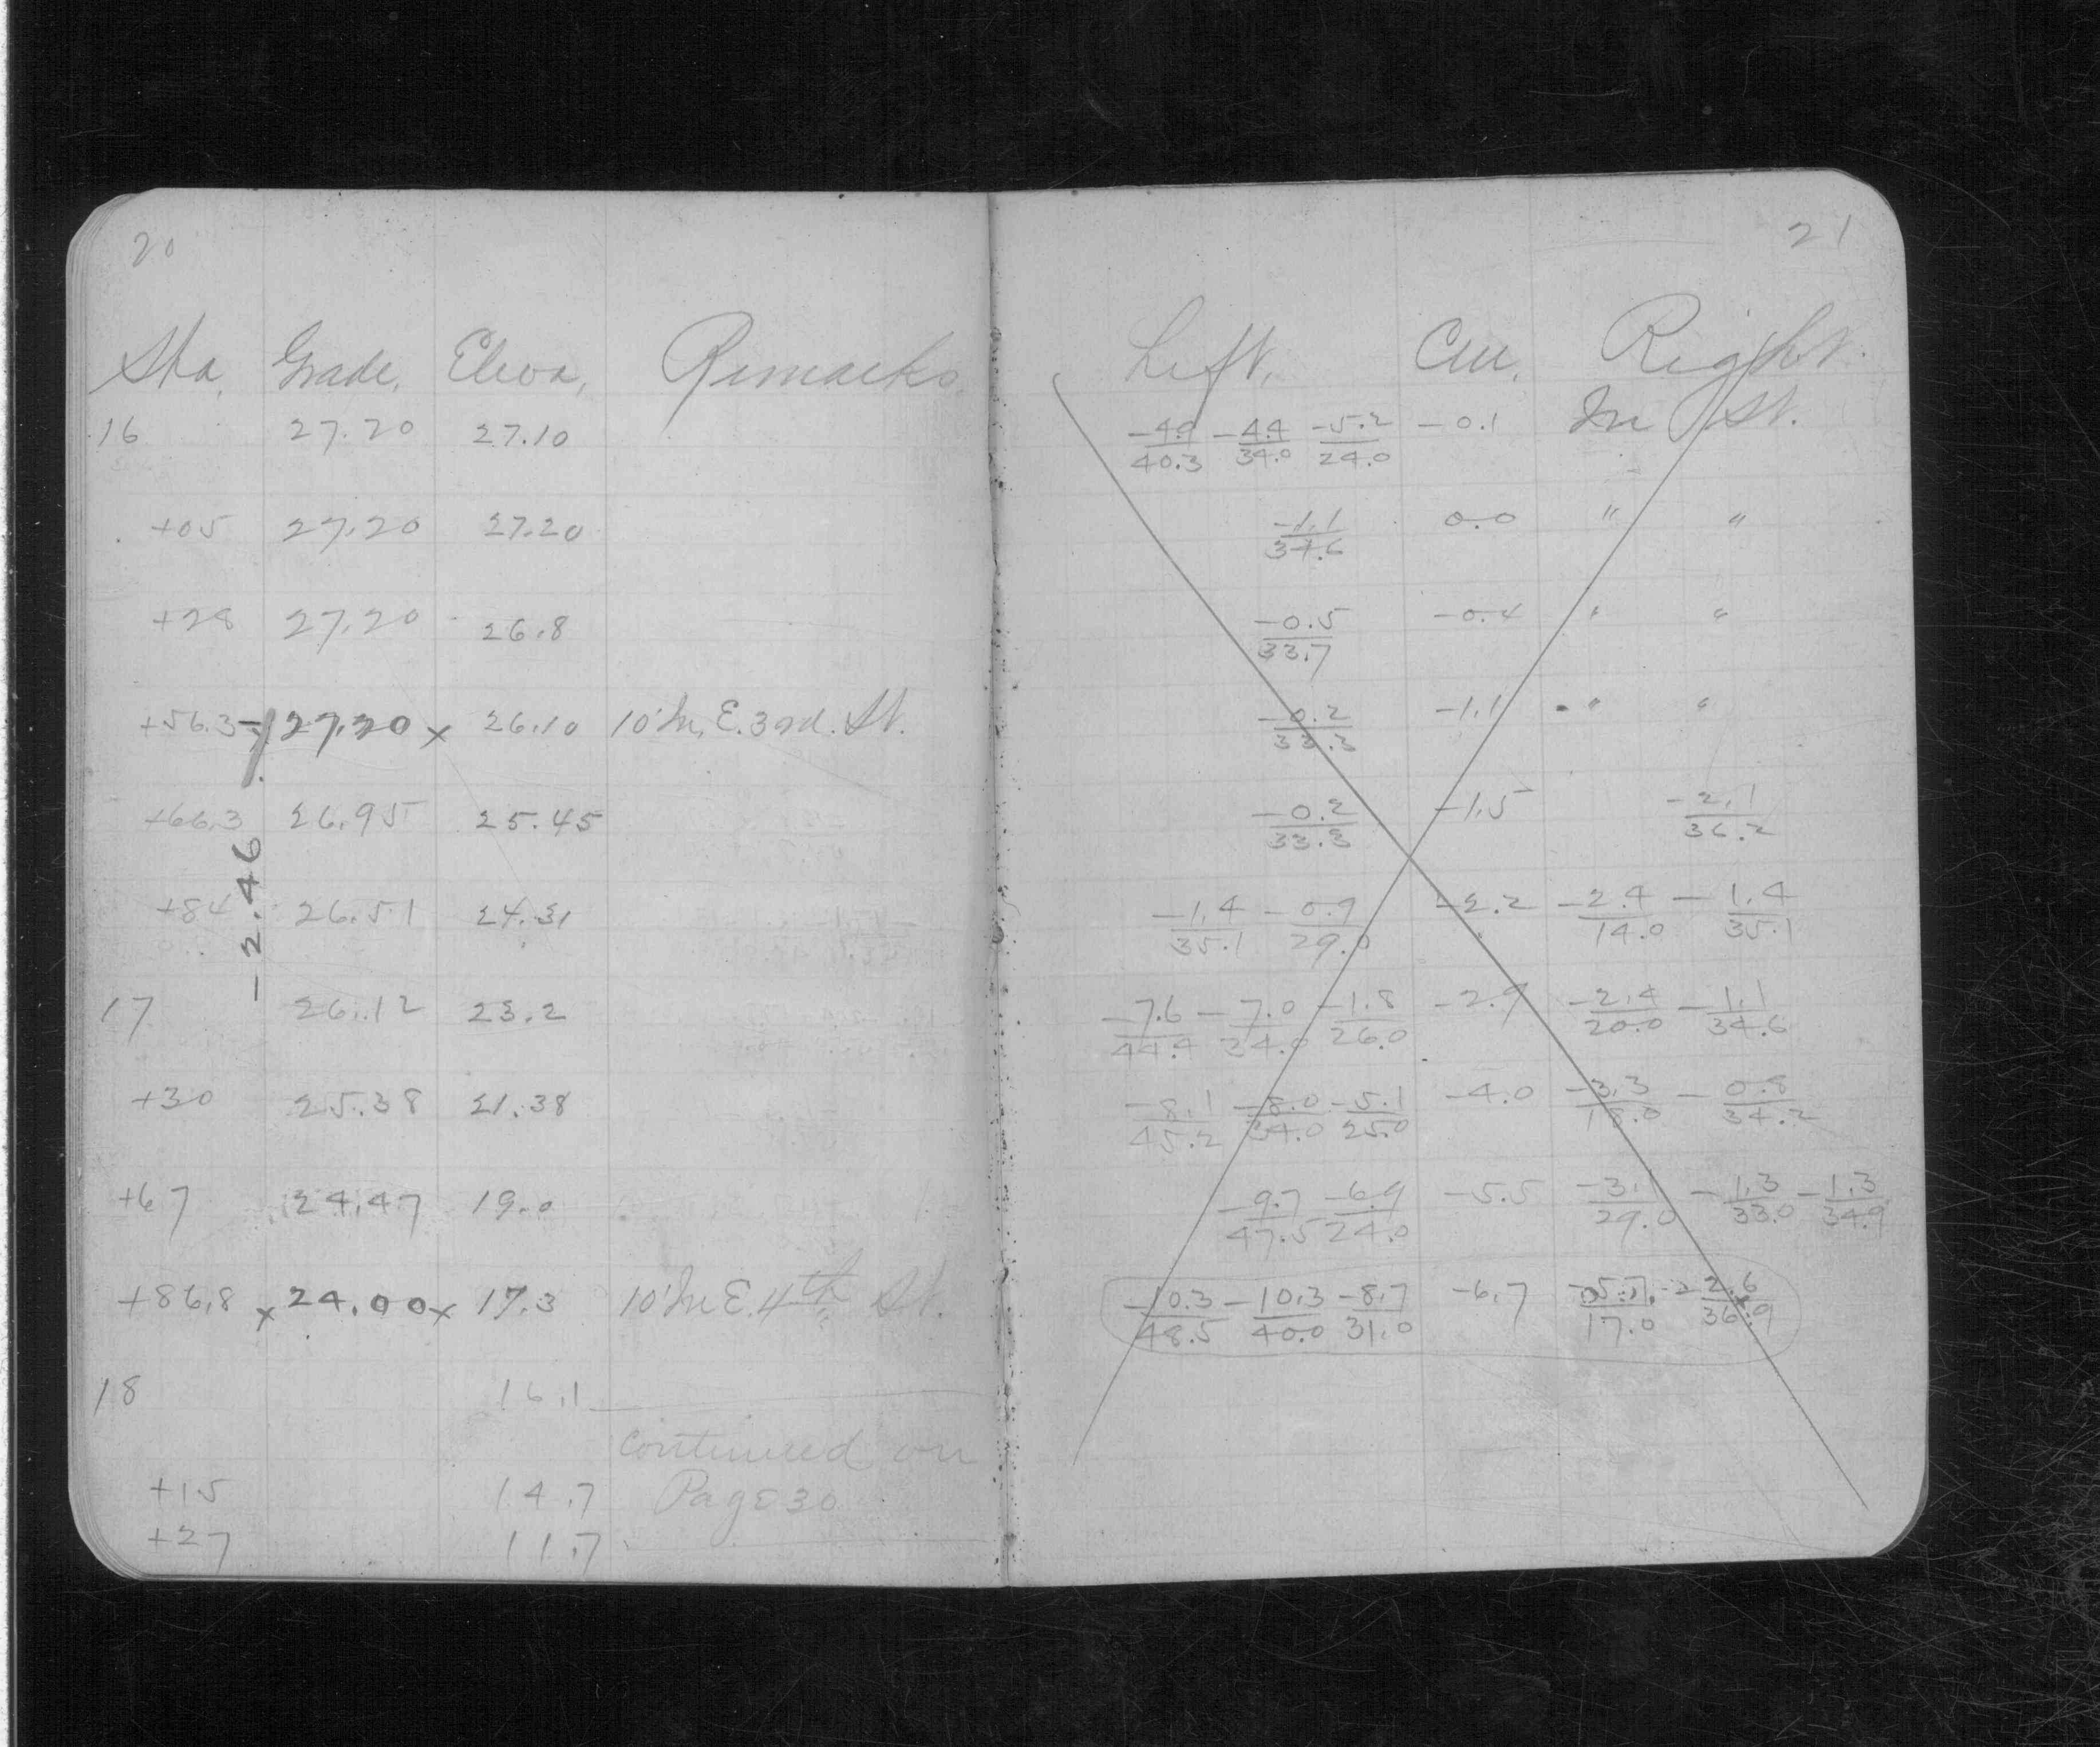 20
Sta. Grade. Eleva. Remarks.
16 27.20 27.10
+05 27.20 27.20
+28 27.20 26.8
+56.3 27.20 x 26.10 10' In. E. 3rd. St.
+66.3 26.95 25.45
-2.46
+84 26.51 24.31
17 26.12 23.2
+30 25.38 21.38
+67 24.47 19.0
+86.8 x 24.00 x 17.3 10' In E. 4th St.
18 16.1
continued on
+15 14.7 Page 30
+27 11.7
21
Left. Cen. Right.
-4.9 -4.4 -5.2 -0.1 In St.
40.3 34.0 24.0
-1.1 0.0 " "
34.6
-0.5 -0.4 " "
33.7
-0.2 -1.1 " "
33.3
-0.2 -1.5 -2.1
33.3 36.2
-1.4 -0.9 -2.2 -2.4 -1.4
35.1 29.0 14.0 35.1
-7.6 -7.0 -1.8 -2.9 -2.4 -1.1
44.4 34.0 26.0 20.0 34.6
-8.1 -8.0 -5.1 -4.0 -3.3 -0.8
45.2 34.0 25.0 18.0 34.2
-9.7 -6.9 -5.5 -3.1 -1.3 -1.3
47.5 24.0 29.0 33.0 34.9
-10.3 -10.3 -8.7 -6.7 -5.7 -2.6
48.5 40.0 31.0 17.0 36.9